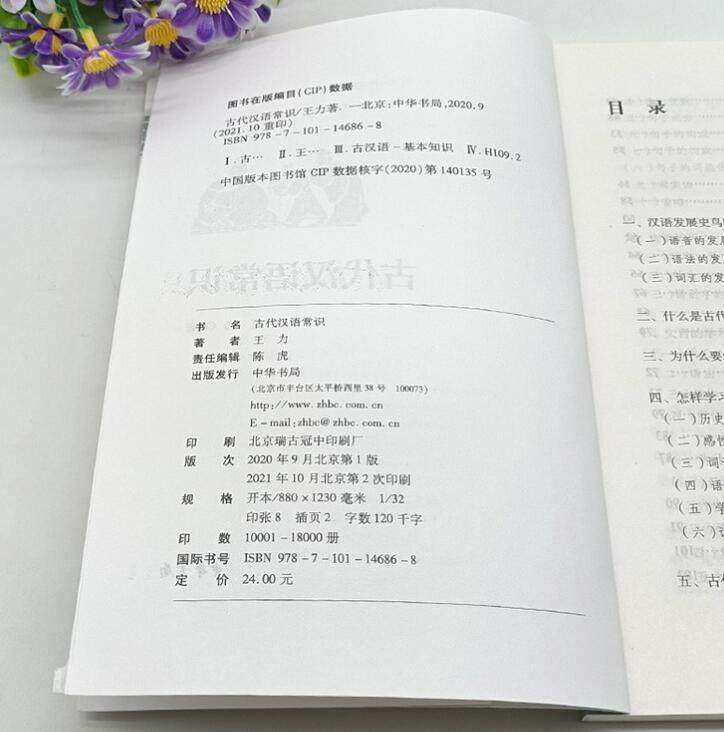 图书在版编目(CIP)数据
古代汉语常识/王力著. —北京:中华书局,2020.9
(2021.10重印)
ISBN 978-7-101-14686-8
Ⅰ.古… Ⅱ.王… Ⅲ.古汉语-基本知识 Ⅳ.H109.2
中国版本图书馆CIP数据核字(2020)第140135号
古代汉语常识
书 名 古代汉语常识
著 者 王 力
责任编辑 陈 虎
出版发行 中华书局
(北京市丰台区太平桥西里38号 100073)
http://www.zhbc.com.cn
E-mail:zhbc@zhbc.com.cn
印 刷 北京瑞古冠中印刷厂
版 次 2020年9月北京第1版
2021年10月北京第2次印刷
规 格 开本/880×1230毫米 1/32
印张8 插页2 字数120千字
印 数 10001-18000册
国际书号 ISBN 978-7-101-14686-8
定 价 24.00元
目 录
一、汉语发展史鸟
(一)语音的发展
(二)语法的发
(三)词汇的发
二、什么是古代
三、为什么要
四、怎样学习
(一)历史
(二)感性
(三)词
(四)语
(五)学
(六)
五、古代